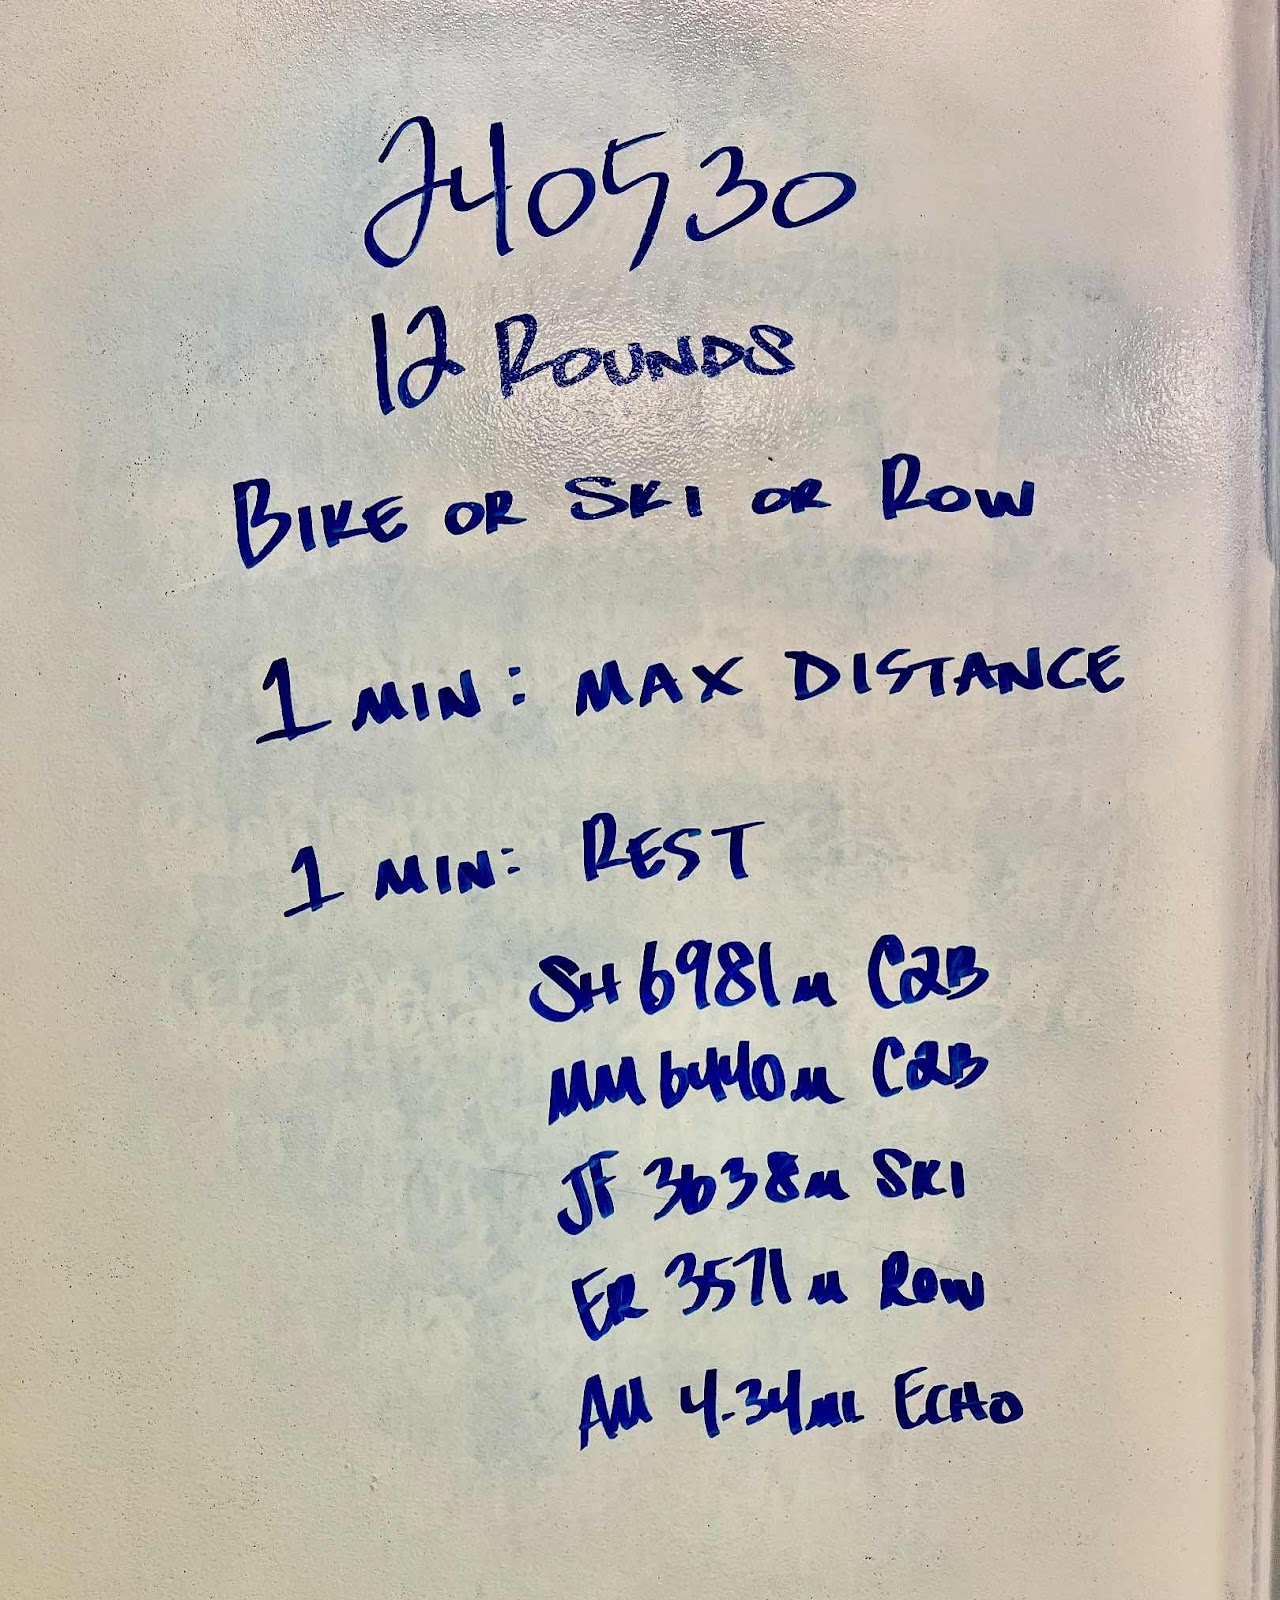 240530
12 ROUNDS
BIKE OR SKI OR ROW
1 MIN: MAX DISTANCE
1 MIN: REST
SH 6981m C2B
MM 6440m C2B
JF 3638m SKI
ER 3571m ROW
AM 4.34mi ECHO